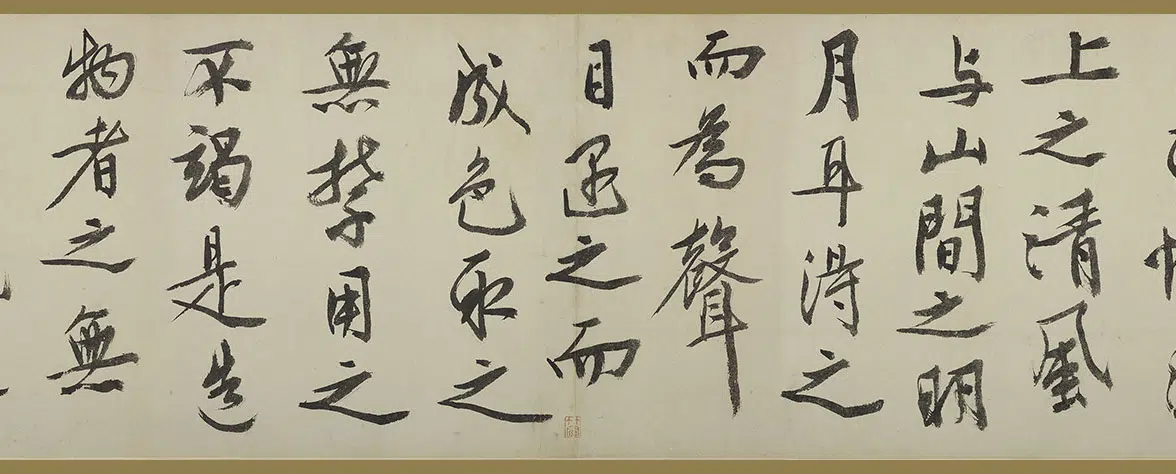 上之清風
与山間之明
月耳得之
而為聲
目遇之而
成色取之
無禁用之
不竭是造
物者之無